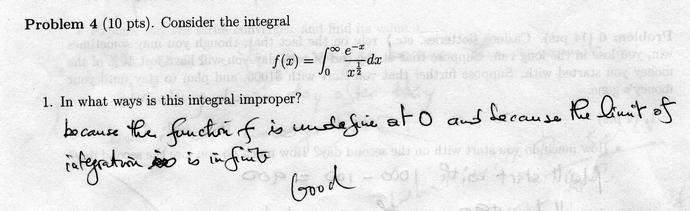 Problem 4 (10 pts). Consider the integral
f(x) = ∫₀^∞ e^{-x}/x^{1/2} dx
1. In what ways is this integral improper?
because the function f is undefine at 0 and because the limit of
integration is infinite
Good